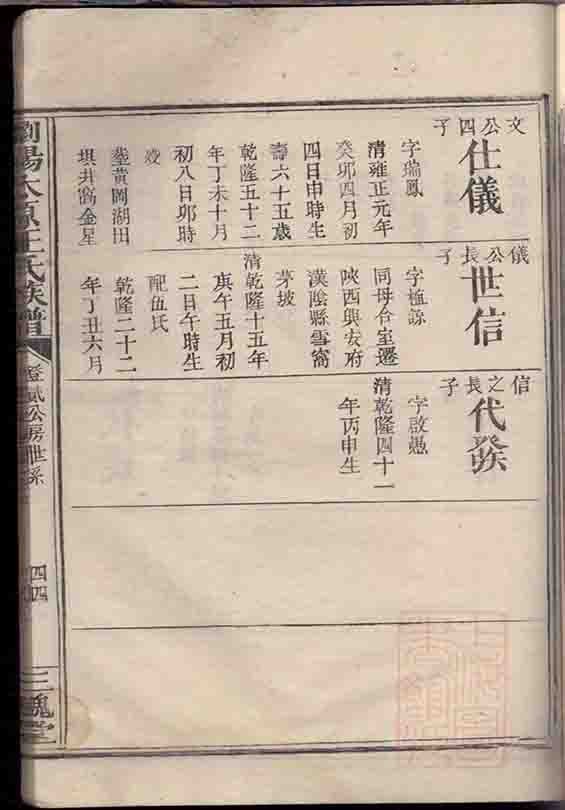 文公四子
仕儀
字瑞鳳
清雍正元年
癸卯四月初
四日申時生
壽六十五歲
乾隆五十二
年丁未十月
初八日卯時
歿
塟黃岡湖田
垻井窩金星
儀公長子
世信
字植諒
同母合室遷
陝西興安府
漢陰縣雪窩
茅坡
清乾隆十五年
庚午五月初
二日午時生
配伍氏
乾隆二十二
年丁丑六月
信之長子
代發
字啟愚
清乾隆四十一
年丙申生
瀏陽太原王氏族譜
公房世系
四四
三槐堂